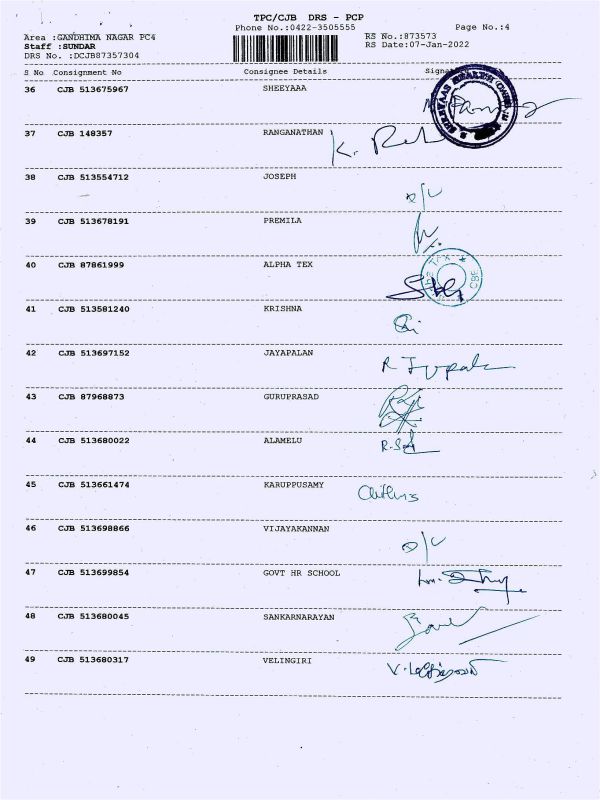 TPC/CJB DRS - PCP
Phone No.:0422-3505555 Page No.:4
Area :GANDHIMA NAGAR PC4 RS No.:873573
Staff :SUNDAR RS Date:07-Jan-2022
DRS No. :DCJB87357304
S No Consignment No Consignee Details
36 CJB 513675967 SHEEYAAA
37 CJB 148357 RANGANATHAN
38 CJB 513554712 JOSEPH
39 CJB 513678191 PREMILA
40 CJB 87861999 ALPHA TEX
41 CJB 513581240 KRISHNA
42 CJB 513697152 JAYAPALAN
43 CJB 87968873 GURUPRASAD
44 CJB 513680022 ALAMELU
45 CJB 513661474 KARUPPUSAMY
46 CJB 513698866 VIJAYAKANNAN
47 CJB 513699854 GOVT HR SCHOOL
48 CJB 513680045 SANKARNARAYAN
49 CJB 513680317 VELINGIRI